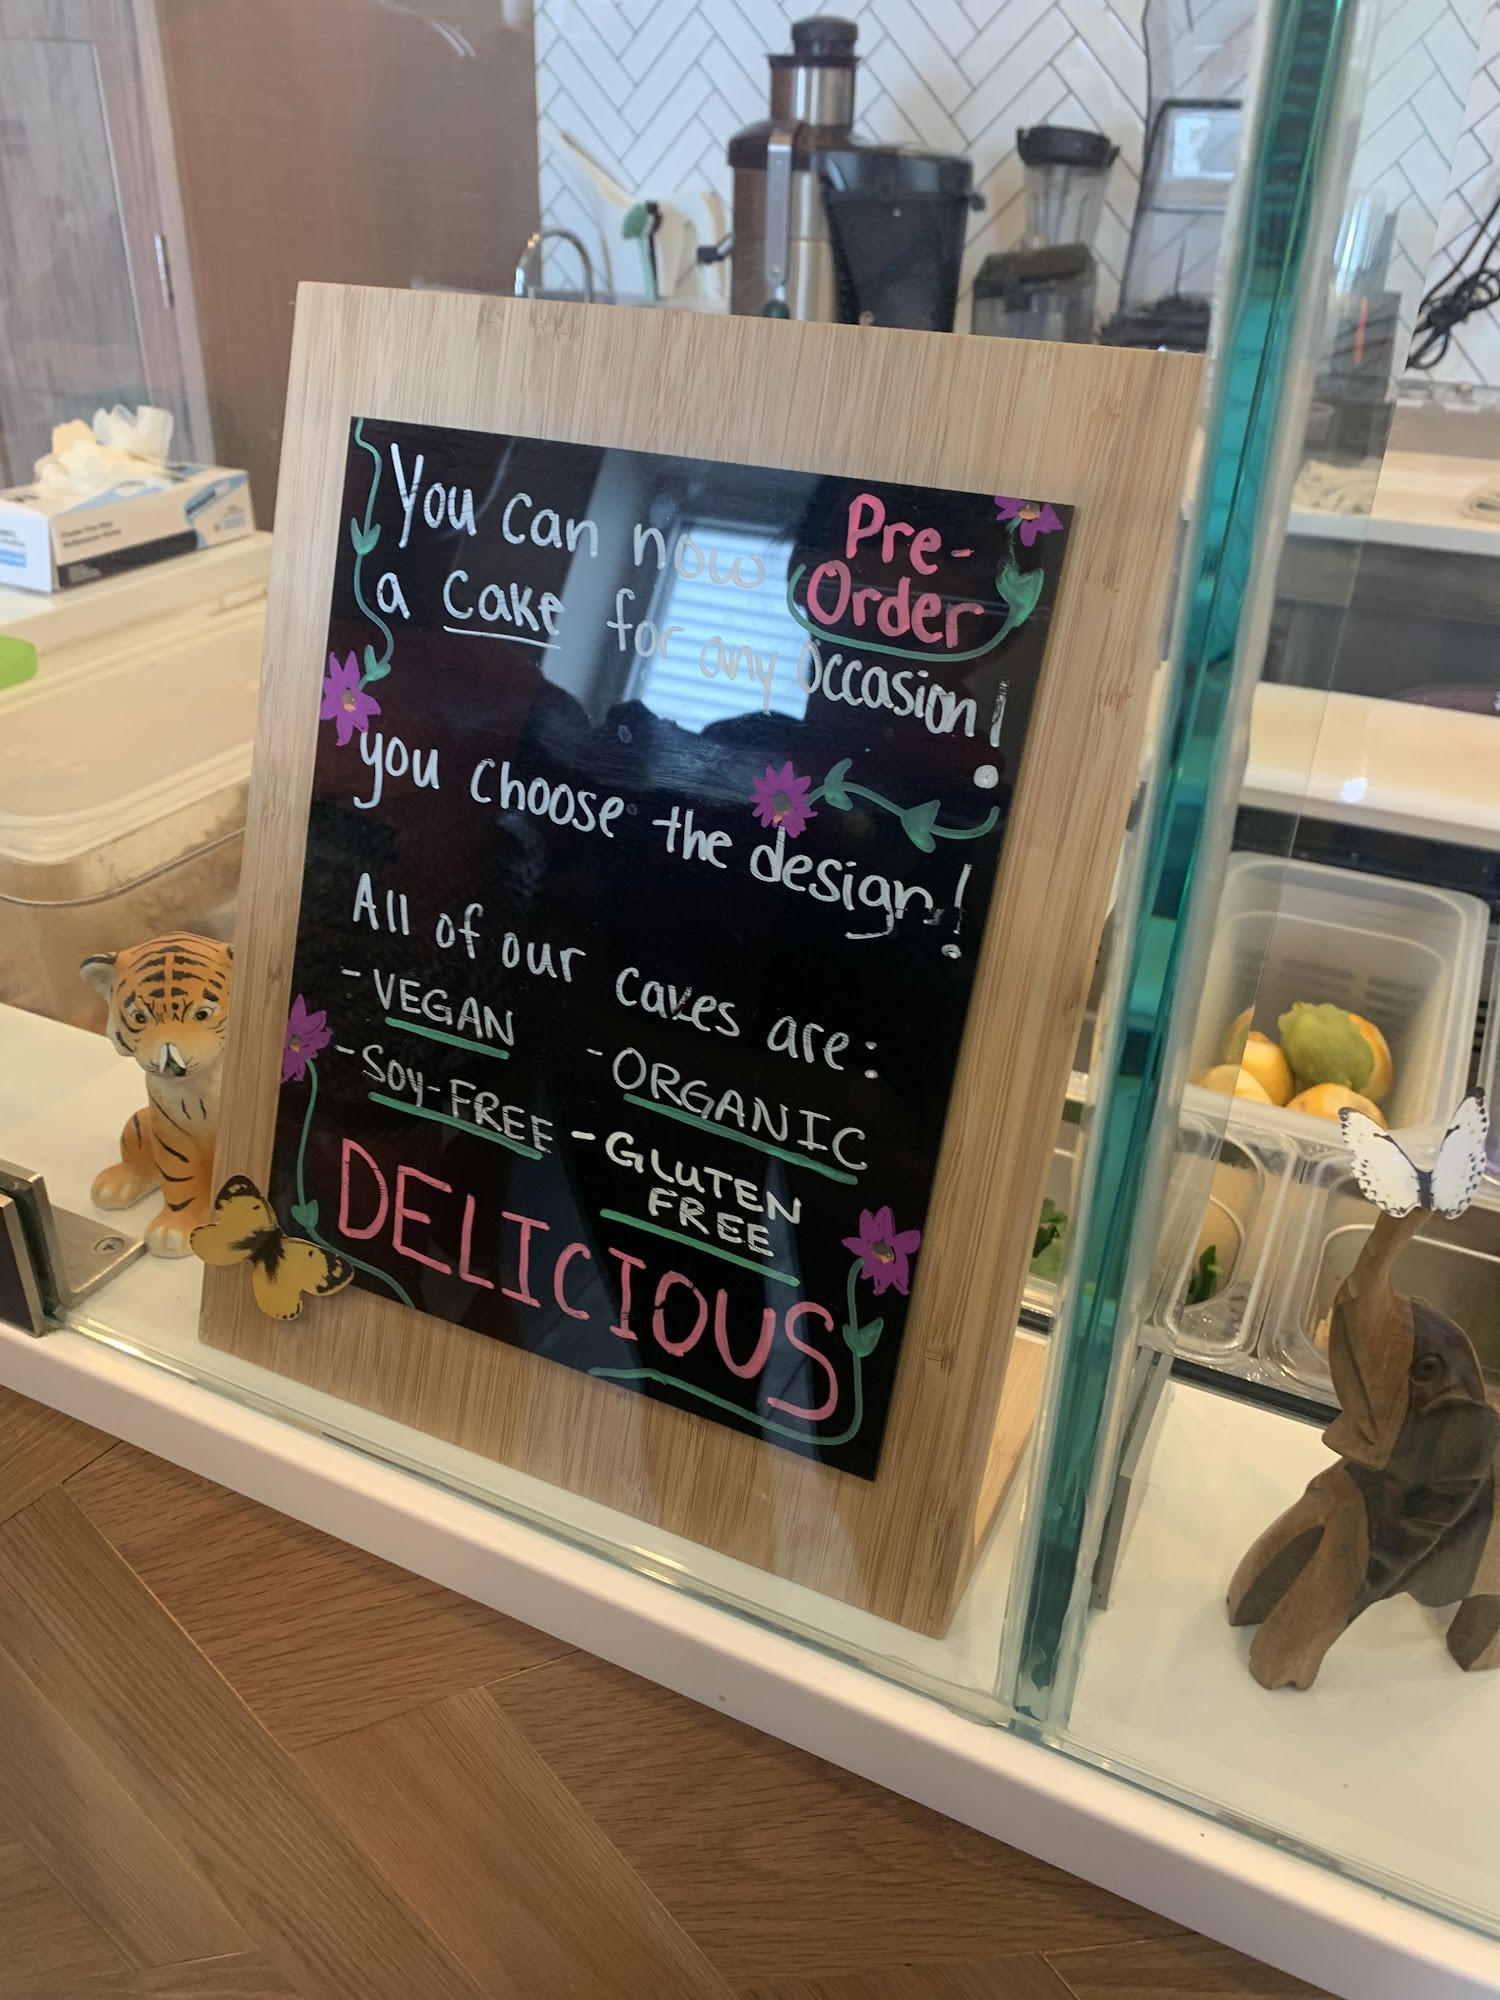 You can now Pre-
Order
a cake for any occasion!
you choose the design!
All of our cakes are:
- VEGAN
- ORGANIC
- Soy-FREE
- GLUTEN
FREE
DELICIOUS